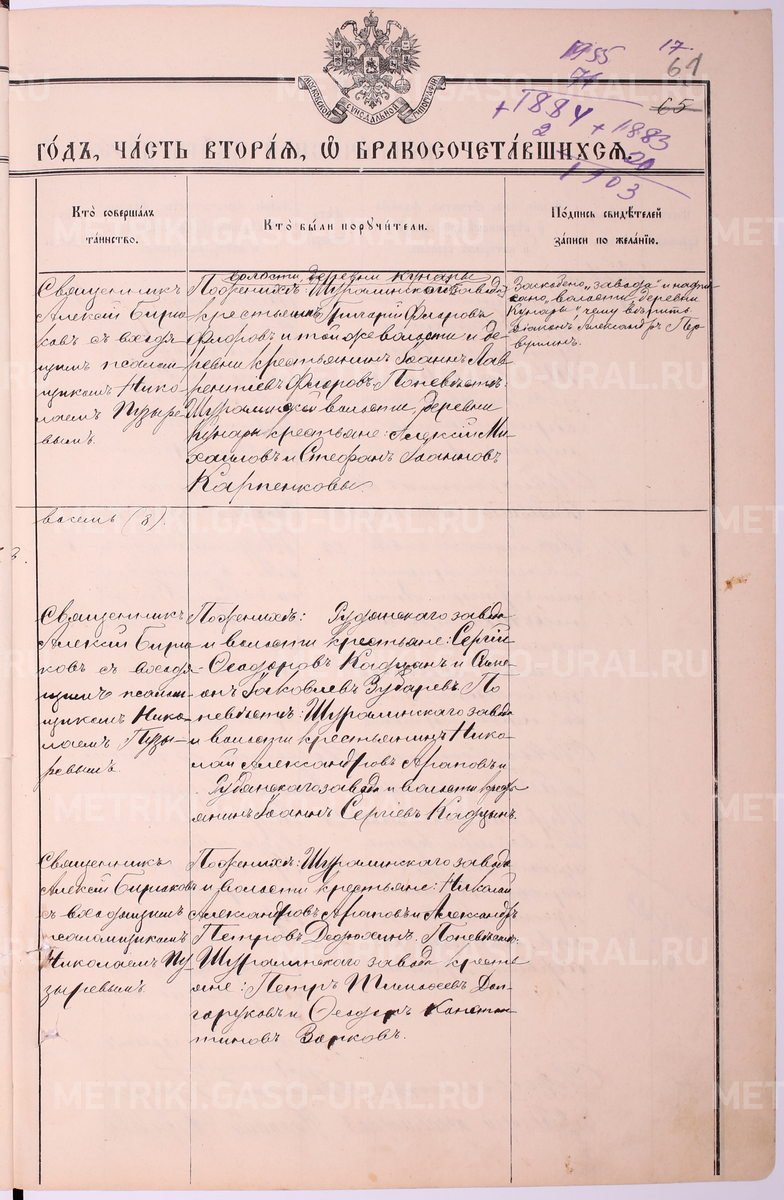 МОСКОВСКОЙ СѴНОДАЛЬНОЙ ТИПОГРАФІИ
17.
61
65
1955
71
+1884
2
+1883
20
1903
ГОДЪ, ЧАСТЬ ВТОРАЯ, Ѽ БРАКОСОЧЕТАВШИХСЯ.
Кто совершалъ
таинство.
Кто были поручители.
Подпись свидѣтелей
записи по желанію.
Священникъ
Алексій Бирю-
ковъ съ и. псалом-
щикомъ Нико-
лаемъ Пузыре-
вымъ.
волости, деревни Кунары
По женихѣ: Шуралинскаго завода
крестьянинъ Григорій Флоровъ
Флоровъ и той же волости и де-
ревни крестьянинъ Іоаннъ Лав-
рентіевъ Флоровъ. По невѣстѣ:
Шуралинской волости, деревни
Кунары крестьяне: Алексій Ми-
хаиловъ и Стефанъ Іоанновъ
Карпенковы.
Зачеркнено „завода" и напи-
сано „волости, деревни
Кунары" чему вѣрить
Діаконъ Александръ
восемь (8).
Священникъ
Алексій Бирю-
ковъ съ
псалом-
щикомъ Нико-
лаемъ Пузы-
ревымъ.
По женихѣ: Рудянскаго завода
и волости крестьяне: Сергій
Ѳеодоровъ Кадцынъ и Симе-
онъ Іаковлевъ Зубаревъ. По
невѣстѣ: Шуралинскаго завода
и волости крестьянинъ Нико-
лай Александровъ Араповъ и
Рудянскаго завода и волости кресть-
янинъ Іоаннъ Сергіевъ Кадцынъ.
Священникъ
Алексій Бирюковъ
съ
псаломщикомъ
Николаемъ Пу-
зыревымъ.
По женихѣ: Шуралинскаго завода
и волости крестьяне: Николай
Александровъ Араповъ и Александръ
Петровъ Дедюхинъ. По невѣстѣ:
Шуралинскаго завода кресть-
яне: Петръ Тимоѳеевъ Дол-
гаруковъ и Ѳеодоръ Констан-
тиновъ Варковъ.
METRIKI.GASO-URAL.RU